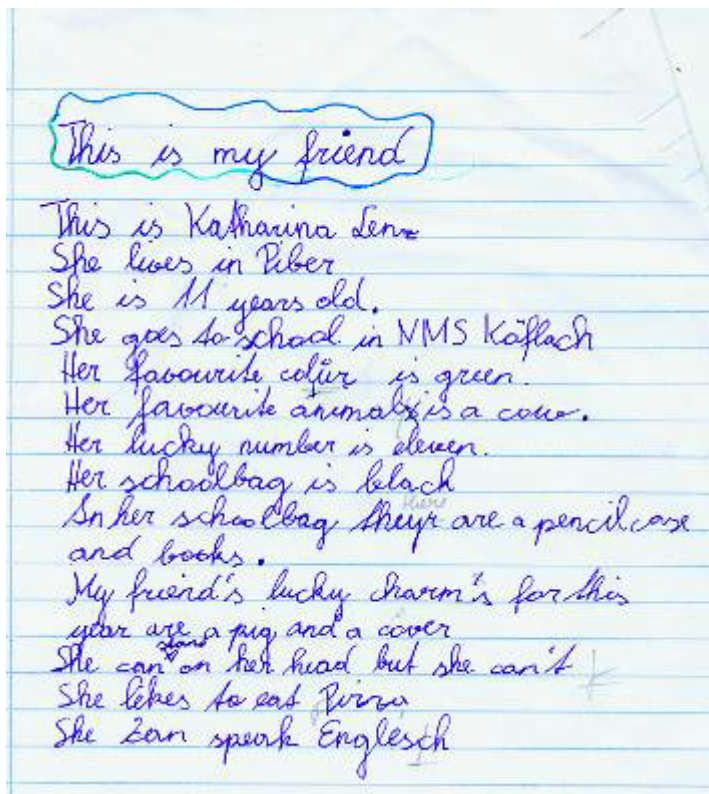 This is my friend
This is Katharina Lenz
She lives in Piber
She is 11 years old.
She goes to school in NMS Köflach
Her favourite colur is green.
Her favourite animal is a cow.
Her lucky number is eleven.
Her schoolbag is black
there
In her schoolbag theyr are a pencilcase
and books.
My friend's lucky charm's for this
year are a pig and a cover
stand
She can on her head but she can't
She likes to eat Pizza
She can speak Englisch